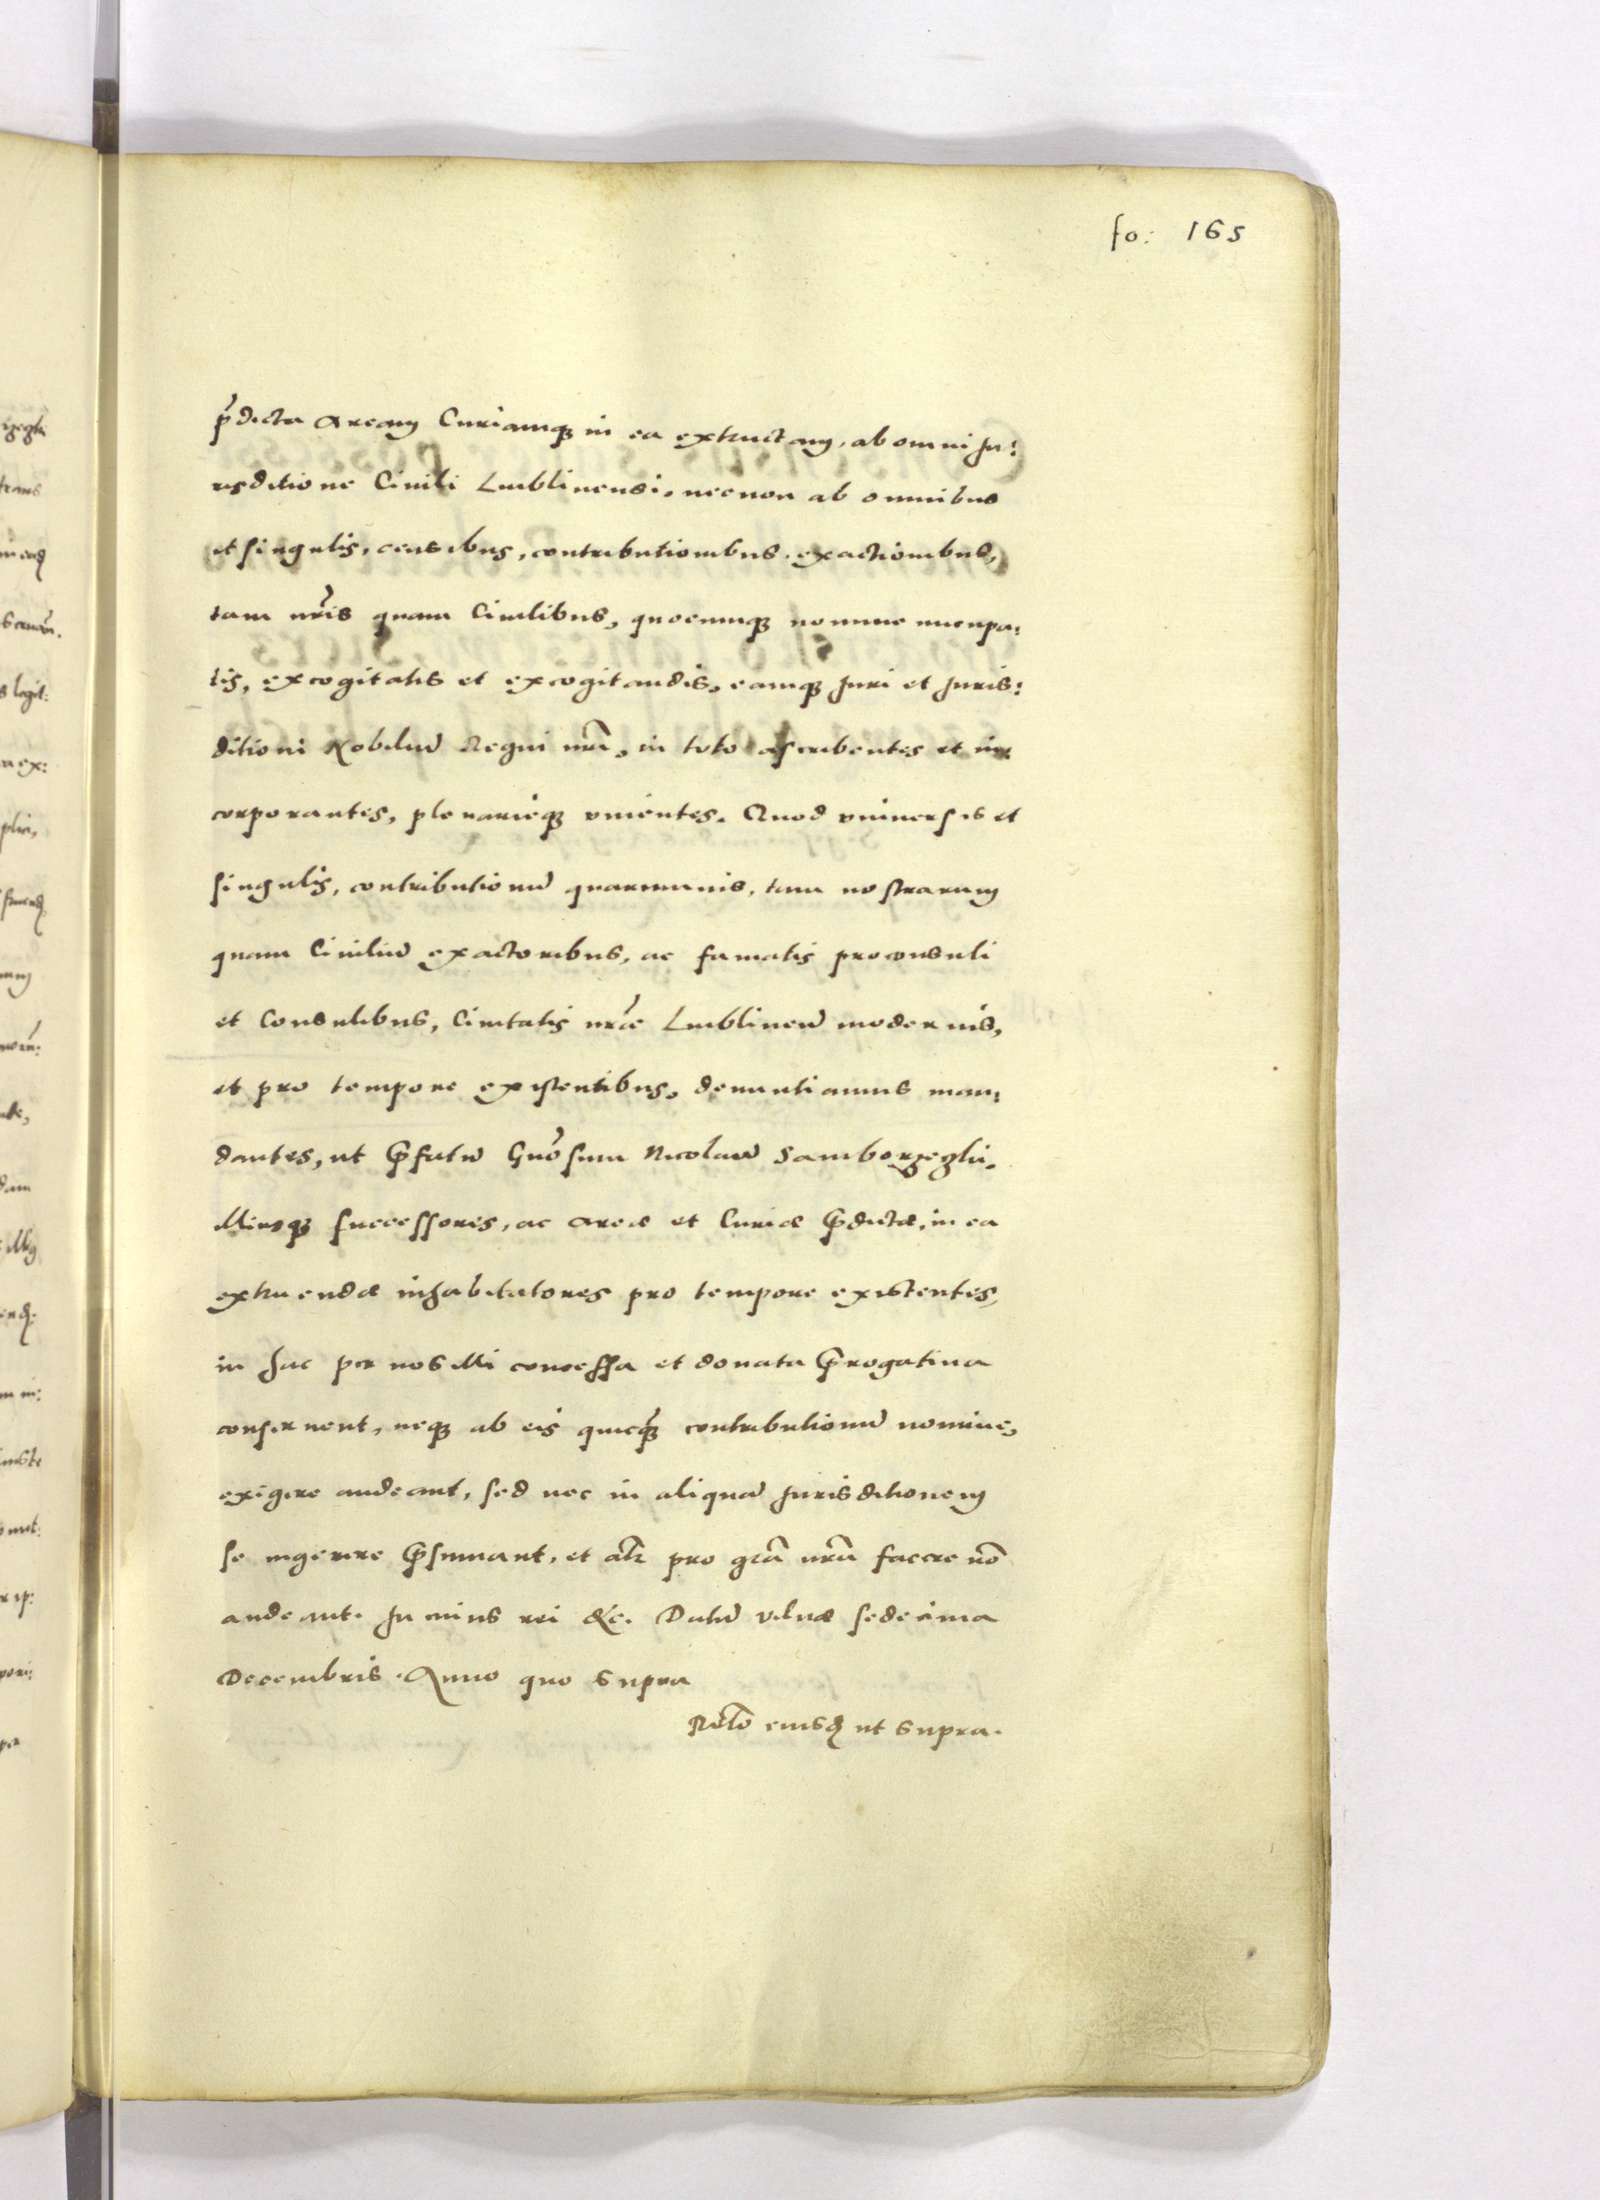 fo: 165
p̃dicta Aream Curiamq3 in ea extructam, ab omni Ju:
risditione Ciuili Lublinensi, necnon ab omnibus
et singulis, censibus, contributionibus, exactionibus,
tam nr̃is quam Ciuilibus, quocumq3 nomine nuncupa:
tis, excogitatis et excogitandis, eamq3 Juri et Juris:
ditioni Nobiliũ Regni nr̃i, in toto ascribentes et in:
corporantes, plenarieq3 vnientes. Quod vniuersis et
singulis, contributionũ quarumuis, tam nostrarum
quam Ciuiliũ exactoribus, ac famatis proconsuli
et Consulibus, Ciuitatis nr̃æ Lublineñ modernis,
et pro tempore existentibus, denuntiamus man:
dantes, ut p̃fatũ Gñosum Nicolaũ Samborzeczki,
illiusq3 successores, ac areæ et Curiæ p̃dictæ, in ea
extruendæ inhabitatores pro tempore existentes,
in hac per nos illi concessa et donata p̃rogatiua
conseruent, neq3 ab eis quicq3 contributionũ nomine,
exigere audeant, sed nec in aliquã Jurisditionem
se ingerere p̃sumant, et alr̃ pro gr̃a nr̃a facere nõ
audeant. In cuius rei &c. Datũ Vilnæ sedecima
Decembris. Anno quo supra
Relõ eiusd ut supra.